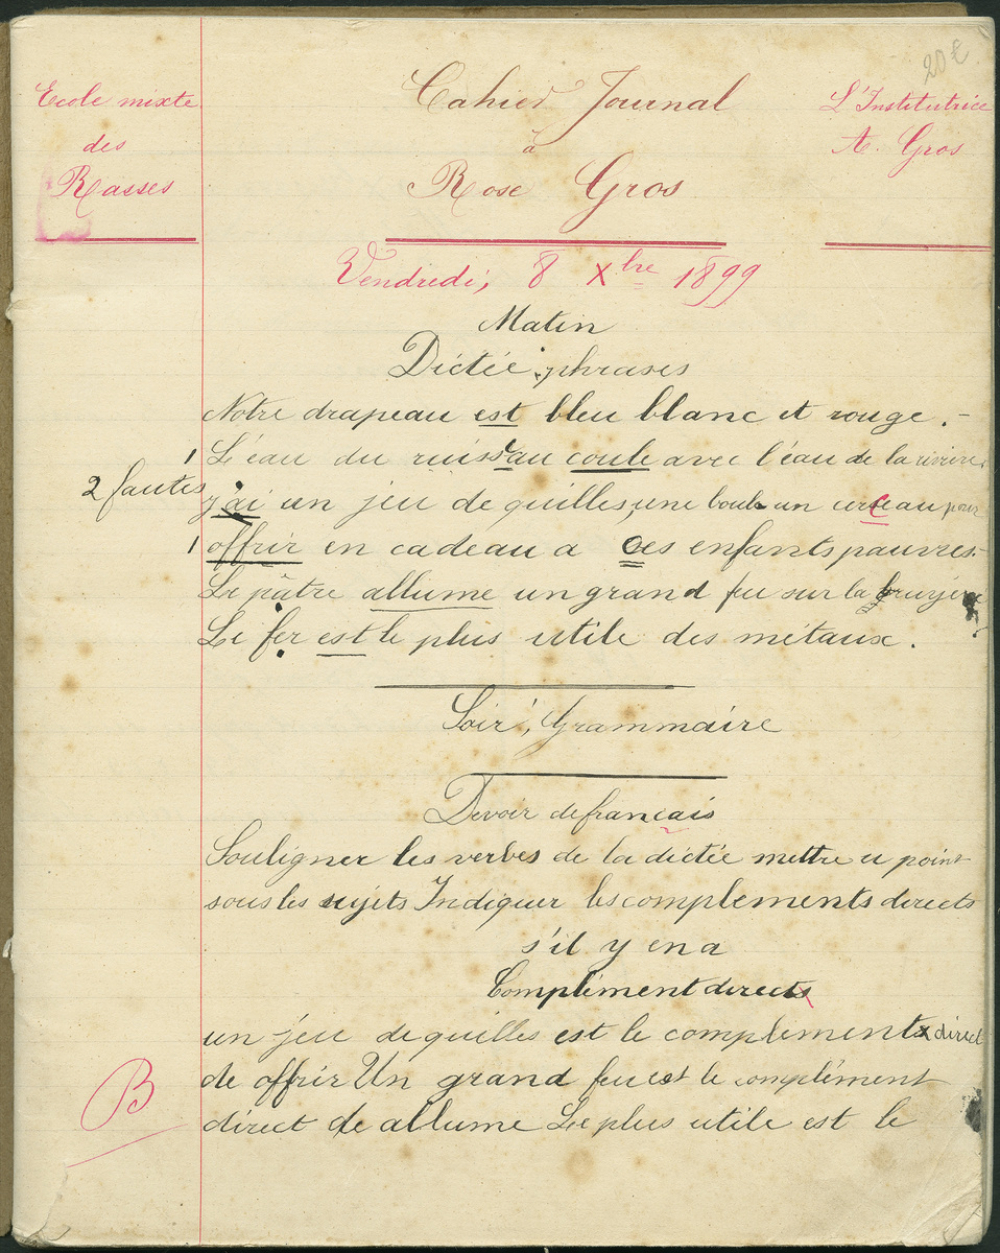 20 €
Ecole mixte
des
Rasses
Cahier Journal
à
Rose Gros
L'Institutrice
A. Gros
Vendredi, 8 Xbre 1899
Matin
Dictée, phrases
Notre drapeau est bleu blanc et rouge. -
1 L'eau du ruisseau coule avec l'eau de la rivière.
2 fautes j'ai un jeu de quilles, une boule un cerceau pour
1 offrir en cadeau a ces enfants pauvres.
Le pâtre allume un grand feu sur la bruyère
Le fer est le plus utile des métaux.
Soir, Grammaire
Devoir de francais
Souligner les verbes de la dictée mettre u point
sous les sujets Indiquer les complements directs
s'il y en a
Complément directs
un jeu de quilles est le complements direct
de offrir Un grand feu est le complément
direct de allume Le plus utile est le
B